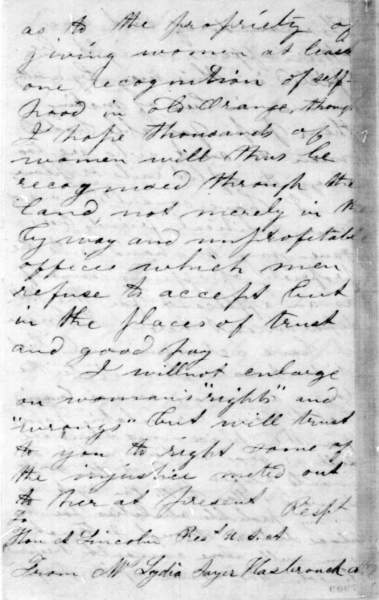 as to the propriety of
giving women at least
one recognition of self-
hood in Old Orange, though
I hope thousands of
women will thus be
recognized through the
land, not merely in the
by way and unprofitable
offices which men
refuse to accept but
in the places of trust
and good pay
I will not enlarge
on woman's "rights" and
"wrongs" but will trust
to you to right some of
the injustice meted out
to her at present
Respt
To
Hon A Lincoln Prest U.S.A
From Mrs Lydia Sayer Hasbrouck